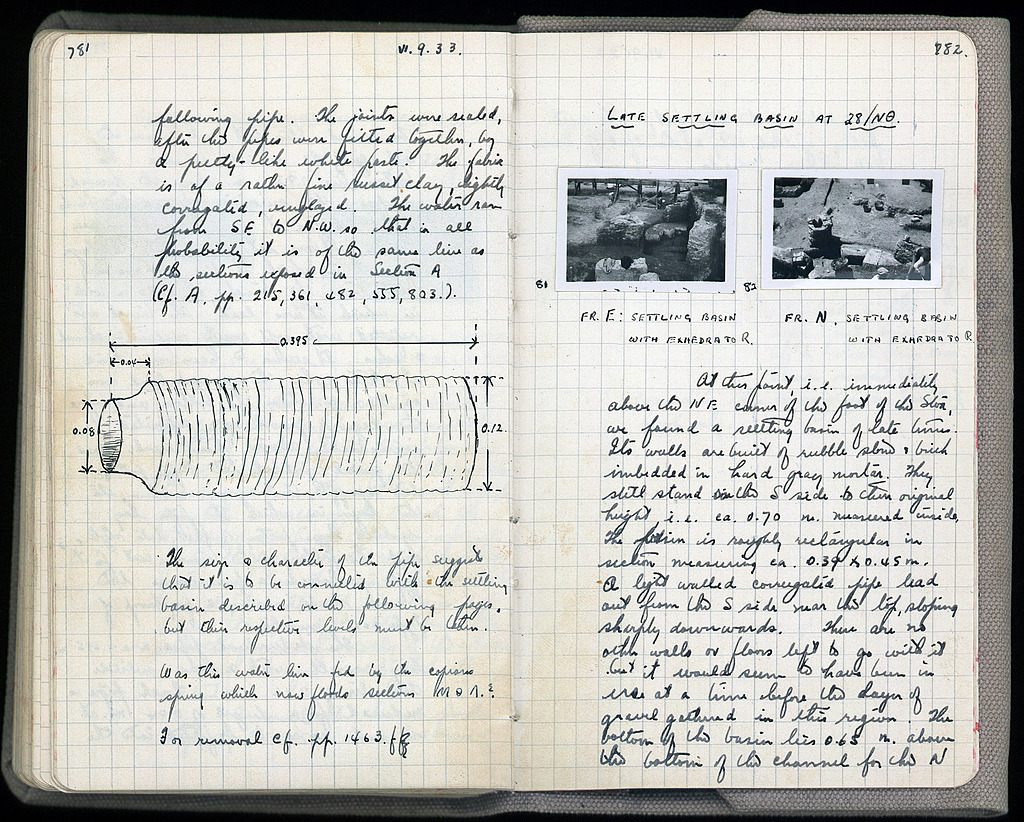 781
VI. 9. 33.
following pipe. The joints were sealed,
after the pipes were fitted together, by
a putty-like white paste. The fabric
is of a rather fine russet clay, lightly
corrugated, unglazed. The water ran
from SE to N.W. so that in all
probability it is of the same line as
the sections exposed in Section A
(Cf. A, pp. 215, 361, 482, 555, 803.).
0.395
0.04
0.08
0.12
The size & character of the pipe suggest
that it is to be connected with the settling
basin described on the following pages,
but their respective levels must be taken.
Was this water line fed by the copious
spring which now floods sections M & Λ.?
For removal cf. pp. 1463 ff
782.
LATE SETTLING BASIN AT 28/ΝΘ.
81
82
FR. E: SETTLING BASIN
WITH EXHEDRA TO R.
FR. N. SETTLING BASIN
WITH EXHEDRA TO R
At this point, i.e. immediately
above the NE corner of the foot of the Stoa,
we found a settling basin of late times.
Its walls are built of rubble stone & brick
imbedded in hard gray mortar. They
still stand on the S side to their original
height i.e. ca. 0.70 m. measured inside.
The basin is roughly rectangular in
section measuring ca. 0.39 x 0.45 m.
A light walled corrugated pipe lead
out from the S side near the top, sloping
sharply downwards. There are no
other walls or floors left to go with it
but it would seem to have been in
use at a time before the days of
gravel gathered in this region. The
bottom of the basin lies 0.65 m. above
the bottom of the channel for the N